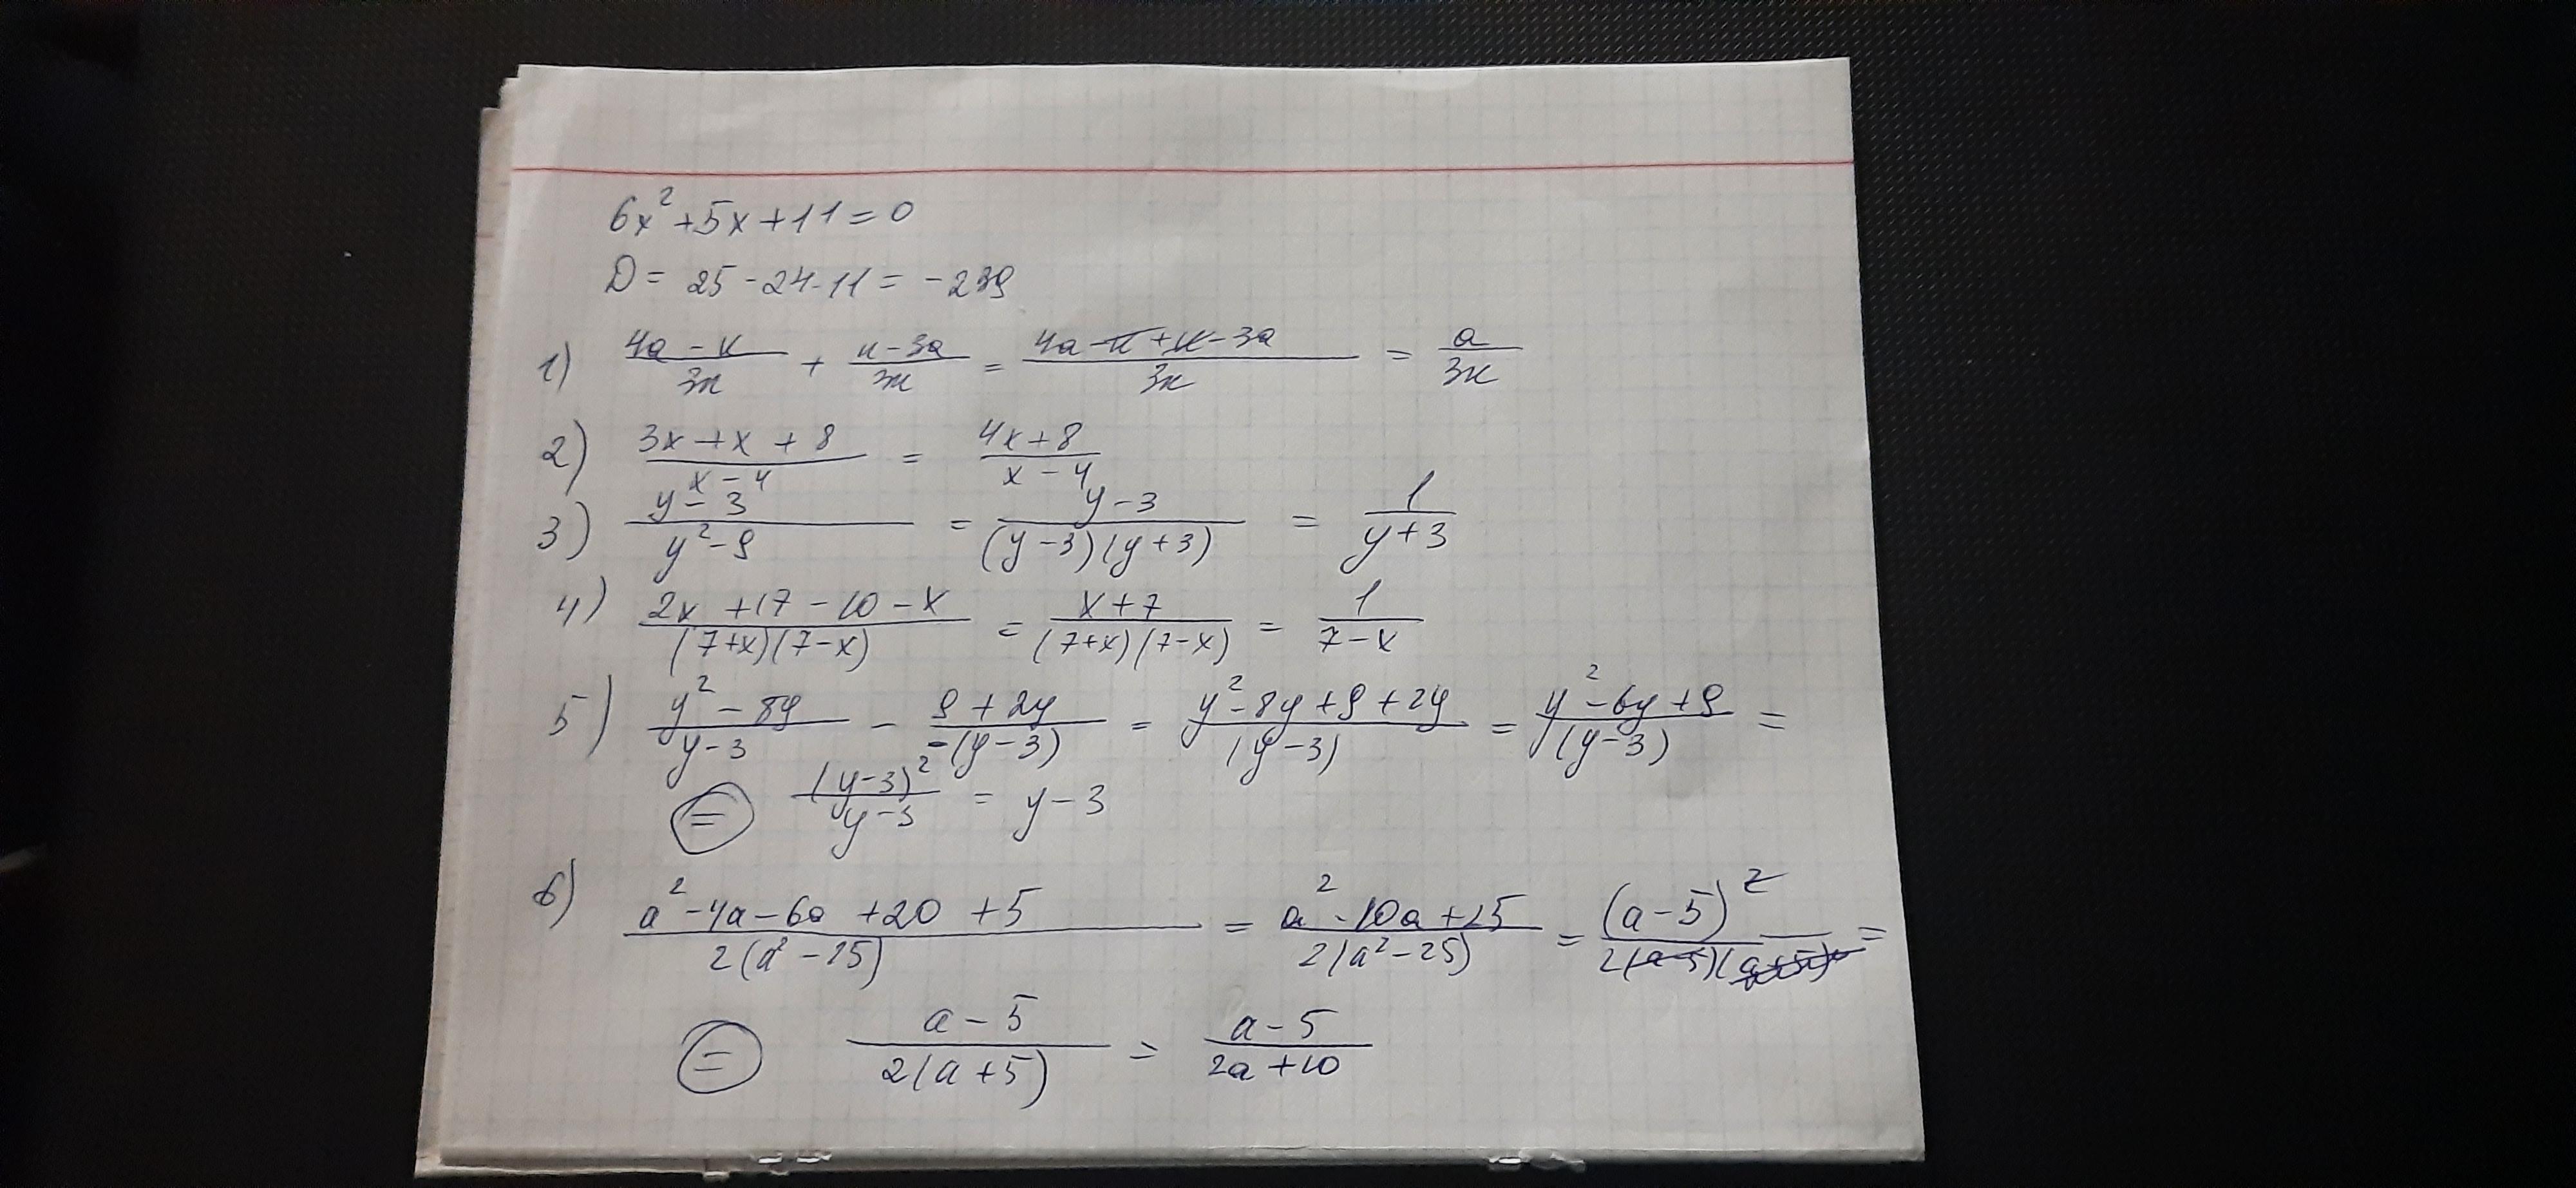 6x² + 5x + 11 = 0
D = 25 - 24·11 = -239
1) (4a - x)/(3x) + (x - 3a)/(3x) = (4a - x + x - 3a)/(3x) = a/(3x)
2) (3x + x + 8)/(x - 4) = (4x + 8)/(x - 4)
3) (y - 3)/(y² - 9) = (y - 3)/((y - 3)(y + 3)) = 1/(y + 3)
4) (2x + 17 - 10 - x)/((7+x)(7-x)) = (x + 7)/((7+x)(7-x)) = 1/(7 - x)
5) (y² - 8y)/(y - 3) - (9 + 2y)/(-(y - 3)) = (y² - 8y + 9 + 2y)/((y - 3)) = (y² - 6y + 9)/((y - 3)) =
= (y - 3)²/(y - 3) = y - 3
6) (a² - 4a - 6a + 20 + 5)/(2(a² - 25)) = (a² - 10a + 25)/(2(a² - 25)) = (a - 5)²/(2(a-5)(a+5)) =
= (a - 5)/(2(a + 5)) = (a - 5)/(2a + 10)